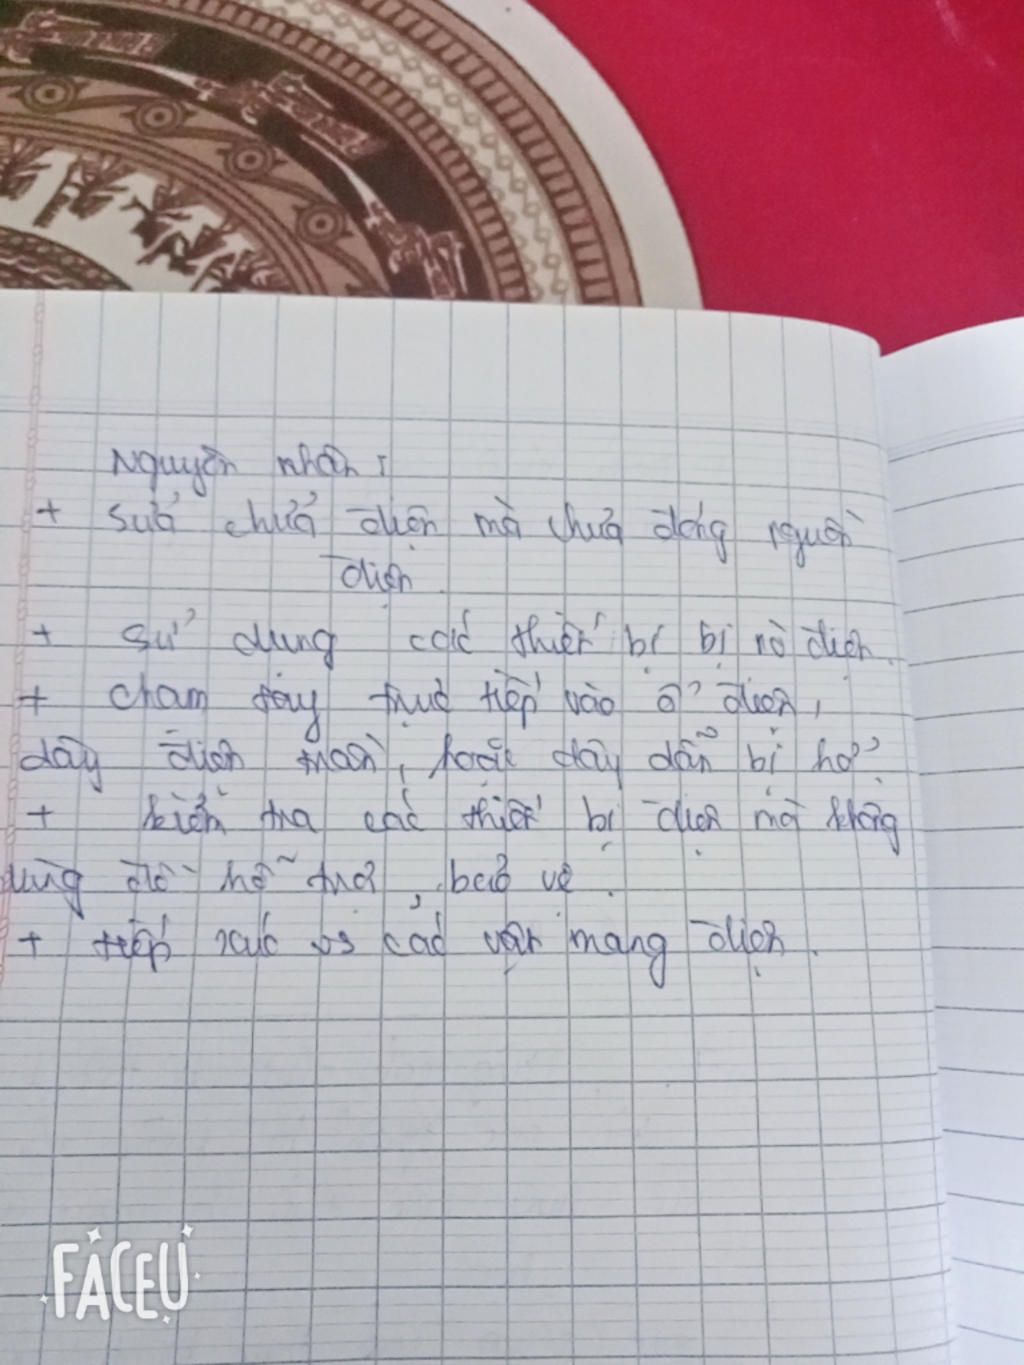 Nguyên nhân:
+ sửa chửa điện mà chưa đóng nguồn
điện.
+ sử dụng các thiết bị bị rò điện.
+ chạm tay trực tiếp vào ổ điện,
dây điện trần, hoặc dây dẫn bị hở.
+ kiểm tra các thiết bị điện mà không
dùng đồ hỗ trợ, bảo vệ.
+ tiếp xúc vs các vật mang điện.
FACEU